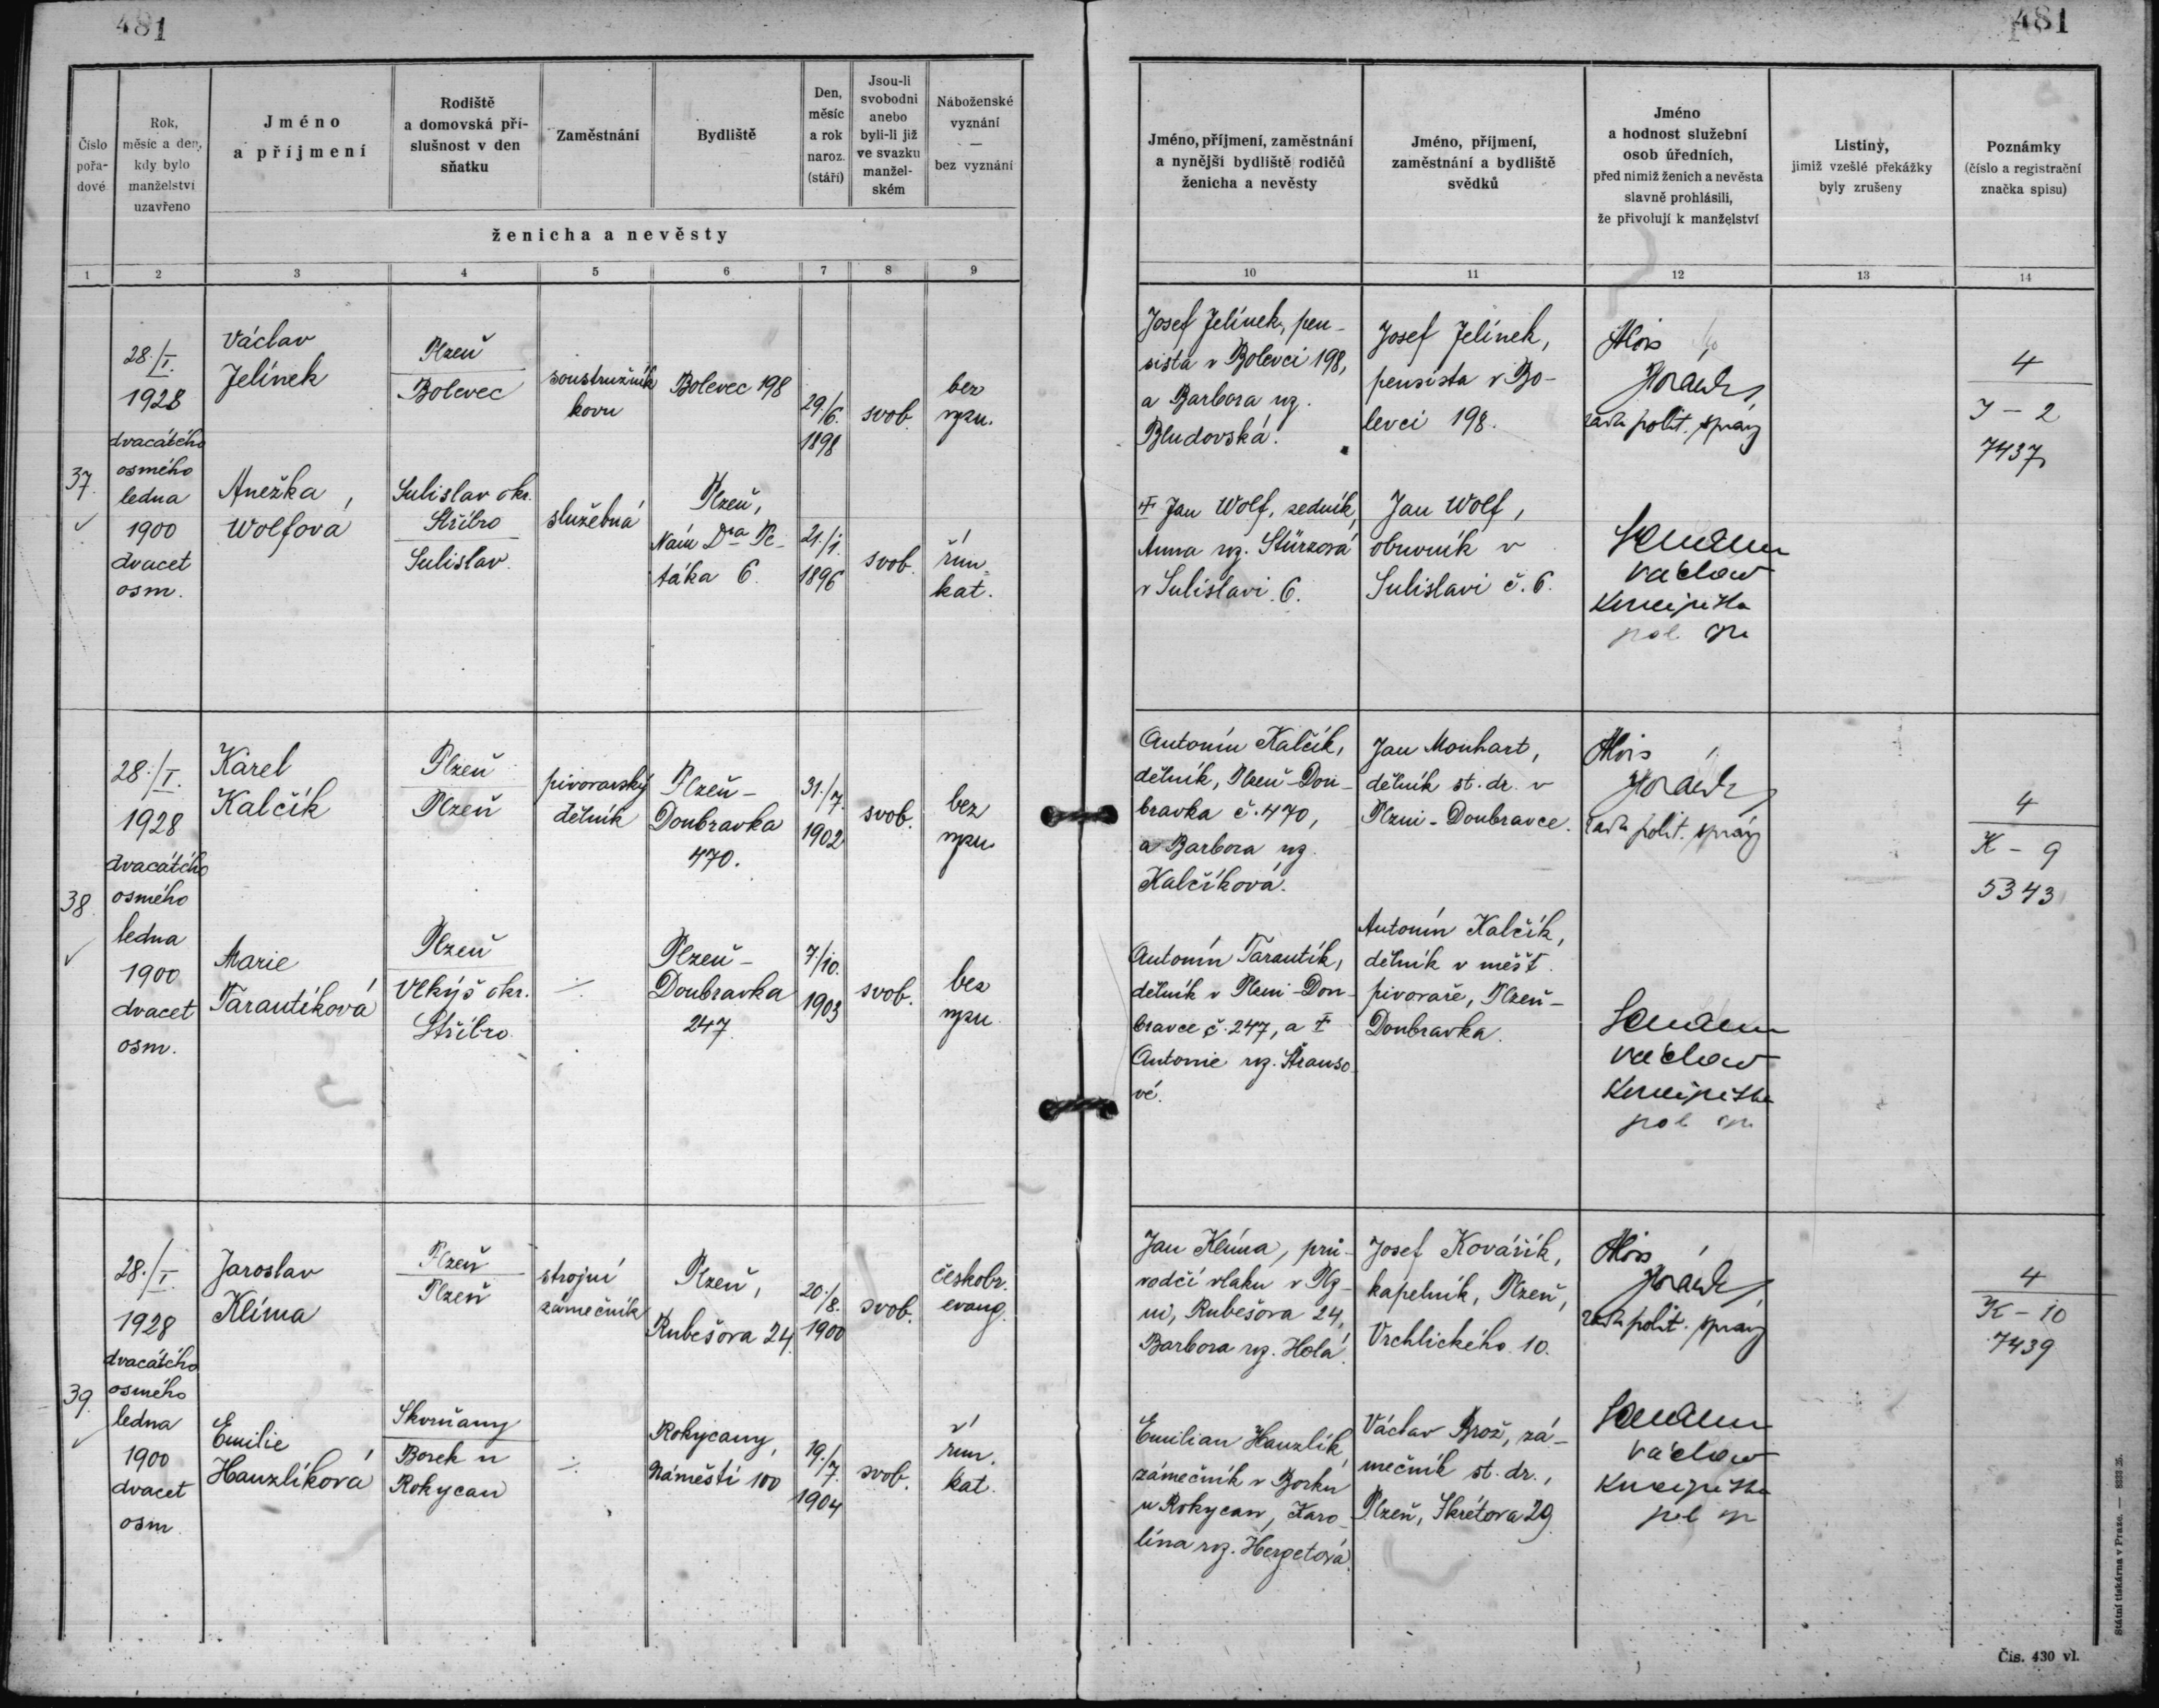 481
481
Číslo pořa-dové
Rok, měsíc a den, kdy bylo manželství uzavřeno
Jméno a příjmení
Rodiště a domovská pří-slušnost v den sňatku
Zaměstnání
Bydliště
Den, měsíc a rok naroz. (stáří)
Jsou-li svobodni anebo byli-li již ve svazku manžel-ském
Náboženské vyznání — bez vyznání
ženicha a nevěsty
1 2 3 4 5 6 7 8 9
Jméno, příjmení, zaměstnání a nynější bydliště rodičů ženicha a nevěsty
Jméno, příjmení, zaměstnání a bydliště svědků
Jméno a hodnost služební osob úředních, před nimiž ženich a nevěsta slavně prohlásili, že přivolují k manželství
Listiny, jimiž vzešlé překážky byly zrušeny
Poznámky (číslo a registrační značka spisu)
10 11 12 13 14
37.
28./I.
1928
dvacátého
osmého
ledna
1900
dvacet
osm.
Václav
Jelínek
Plzeň
Bolevec
soustružník
kovu
Bolevec 198
29./6.
1898
svob.
bez
vyzn.
Anežka
Wolfová
Sulislav okr.
Stříbro
Sulislav.
služebná
Plzeň,
Nám Dra Pe-
táka 6.
21./1.
1896
svob.
řím.
kat.
Josef Jelínek, pen-
sista v Bolevci 198,
a Barbora rz.
Bludovská.
Josef Jelínek,
pensista v Bo-
levci 198.
Alois
rada polit. správy
4
J - 2
7437
† Jan Wolf, sedník,
Anna rz. Stürzová
v Sulislavi 6.
Jan Wolf,
obuvník v
Sulislavi č. 6.
Václav
koncipista
pol.
38.
28./I.
1928
dvacátého
osmého
ledna
1900
dvacet
osm.
Karel
Kalčík
Plzeň
Plzeň
pivovarský
dělník
Plzeň-
Doubravka
470.
31./7.
1902
svob.
bez
vyzn.
Marie
Tarantíková
Plzeň
Vlkýš okr.
Stříbro.
Plzeň-
Doubravka
247
7./10.
1903
svob.
bez
vyzn
Antonín Kalčík,
dělník, Plzeň-Dou-
bravka č. 470,
a Barbora rz.
Kalčíková.
Jan Monhart,
dělník st. dr. v
Plzni-Doubravce.
Alois
rada polit. správy
4
K - 9
5343
Antonín Tarantík,
dělník v Plzni-Dou-
bravce č. 247, a †
Antonie rz. Strauso-
vé.
Antonín Kalčík,
dělník v měšť.
pivovaře, Plzeň-
Doubravka.
Václav
koncipista
pol.
39.
28./I.
1928
dvacátého
osmého
ledna
1900
dvacet
osm
Jaroslav
Klíma
Plzeň
Plzeň
strojní
zámečník
Plzeň,
Rubešova 24.
20./8.
1900
svob.
českobr.
evang.
Emilie
Hanzlíková
Skvrňany
Borek u
Rokycan
Rokycany,
Náměstí 100
19./7.
1904
svob.
řím.
kat.
Jan Klíma, prů-
vodčí vlaku v Plz-
ni, Rubešova 24,
Barbora rz. Holá.
Josef Kovářík,
kapelník, Plzeň,
Vrchlického 10.
Alois
rada polit. správy
4
K - 10
7439
Emilian Hanzlík,
zámečník v Borku
u Rokycan, Karo-
lína rz. Hergetová.
Václav Brož, zá-
mečník st. dr.,
Plzeň, Skrétova 29.
Václav
koncipista
pol.
Státní tiskárna v Praze.
Čís. 430 vl.